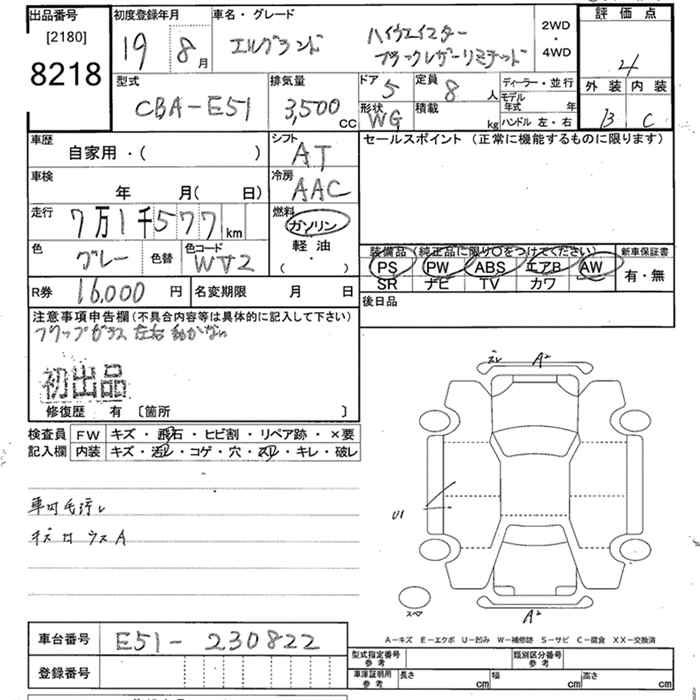 出品番号 初度登録年月 車名・グレード 評価点
[2180] 19 8月 エルグランド ハイウェイスター 2WD
8218 ブラックレザーリミテッド ・ 4WD 4
型式 排気量 ドア 定員 ディーラー・並行 外装 内装
CBA-E51 3,500cc 5 8人 モデル年式 年 B C
形状 積載 ハンドル 左・右
WG kg
車歴 シフト セールスポイント (正常に機能するものに限ります)
自家用・( ) AT
車検 冷房
年 月( 日) AAC
走行 燃料
7万1千577km ガソリン
色 色替 色コード 軽油 装備品 (純正品に限り○をつけてください) 新車保証書
グレー WV2 (・) PS PW ABS エアB AW 有・無
SR ナビ TV カワ
R券 16,000円 名変期限 月 日 後日品
注意事項申告欄(不具合内容等は具体的に記入して下さい)
フリップガラス 左右 動かない
初出品
修復歴 有 [箇所 ]
検査員 FW キズ・飛石・ヒビ割・リペア跡・×要
記入欄 内装 キズ・汚レ・コゲ・穴・スリ・キレ・破レ
A²
車内毛汚レ
U1
スペア
A²
A-キズ E-エクボ U-凹み W-補修跡 S-サビ C-腐食 XX-交換済
車台番号 E51-230822 型式指定番号 参考 類別区分番号 参考
登録番号 車庫証明用 参考 長さ cm 幅 cm 高さ cm